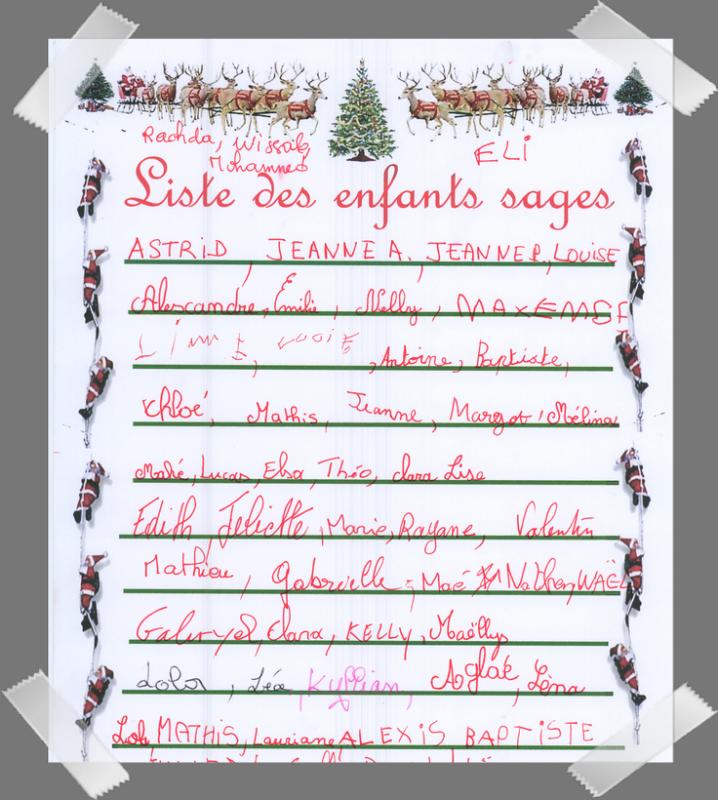 Rachda, Wissal,
Mohammed
ELI
Liste des enfants sages
ASTRID, JEANNE A., JEANNE R., LOUISE
Alexandre, Émilie, Nelly, MAXENCE
Antoine, Baptiste,
Chloé, Mathis, Jeanne, Margot, Mélina
Maké, Lucas, Elsa, Théo, Clara Lise
Edith Juliette, Marie, Rayane, Valentin
Mathieu, Gabrielle, Maé Nathan, WAËL
Gabryel, Clara, KELLY, Maëllys
Lola, Léa, Kyllian, Aglaé, Léna
Lola, MATHIS, Lauriane ALEXIS BAPTISTE